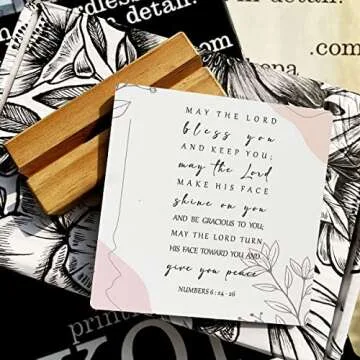 detail.
in detail.
.com
MAY THE LORD
bless you
AND KEEP YOU;
may the Lord
MAKE HIS FACE
shine on you
AND BE GRACIOUS TO YOU;
MAY THE LORD TURN
HIS FACE TOWARD YOU AND
give you peace
NUMBERS 6:24-26